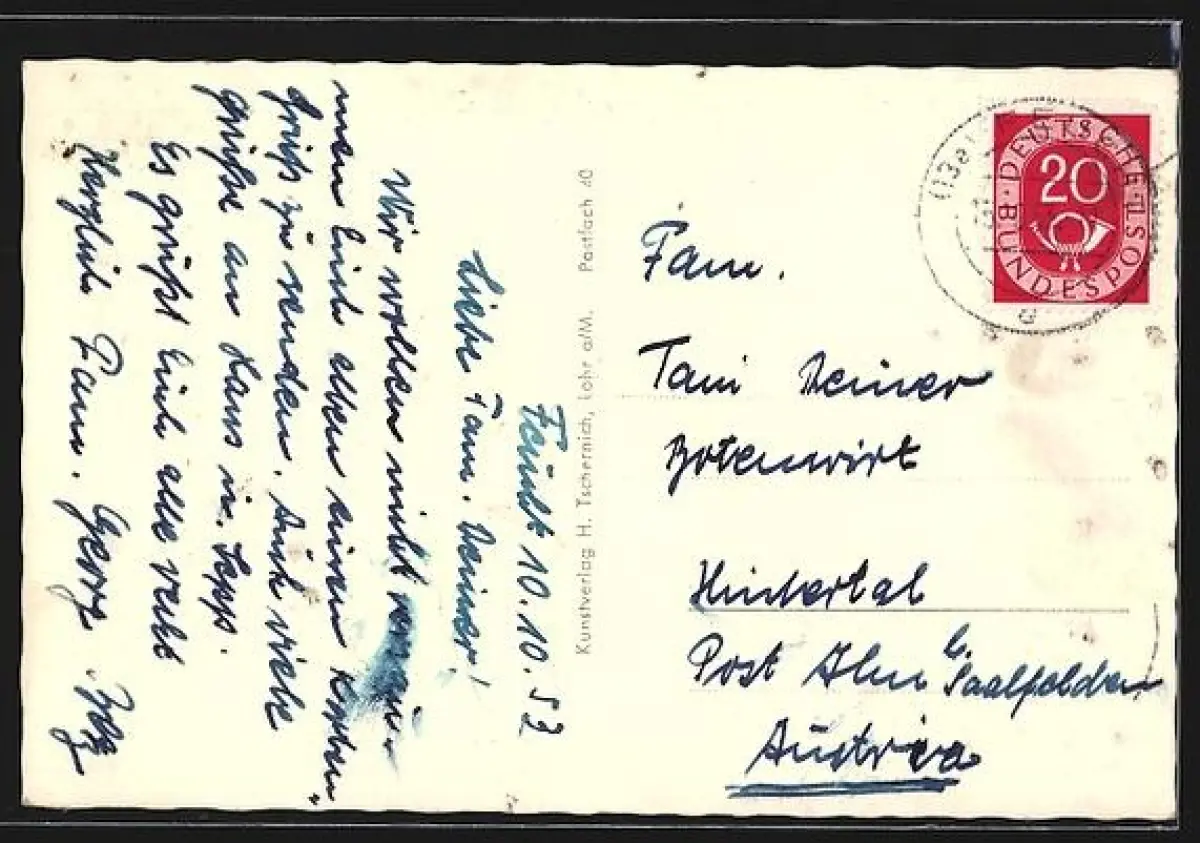 Feucht 10.10.52
Liebe Fam. Reiner!
Wir wollen nicht versäu-
men Euch eben einen kurzen
Gruß zu senden. Auch viele
Grüße an Hans u. Sepp.
Es grüßt Euch alle recht
Herzlich Fam. Georg
Kunstverlag H. Tschernich, Lohr a/M. Postfach 40
(13a)
DEUTSCHE BUNDESPOST
20
Fam.
Reiner
Botenwirt
Hintertal
Post Alm b. Saalfelden
Austria